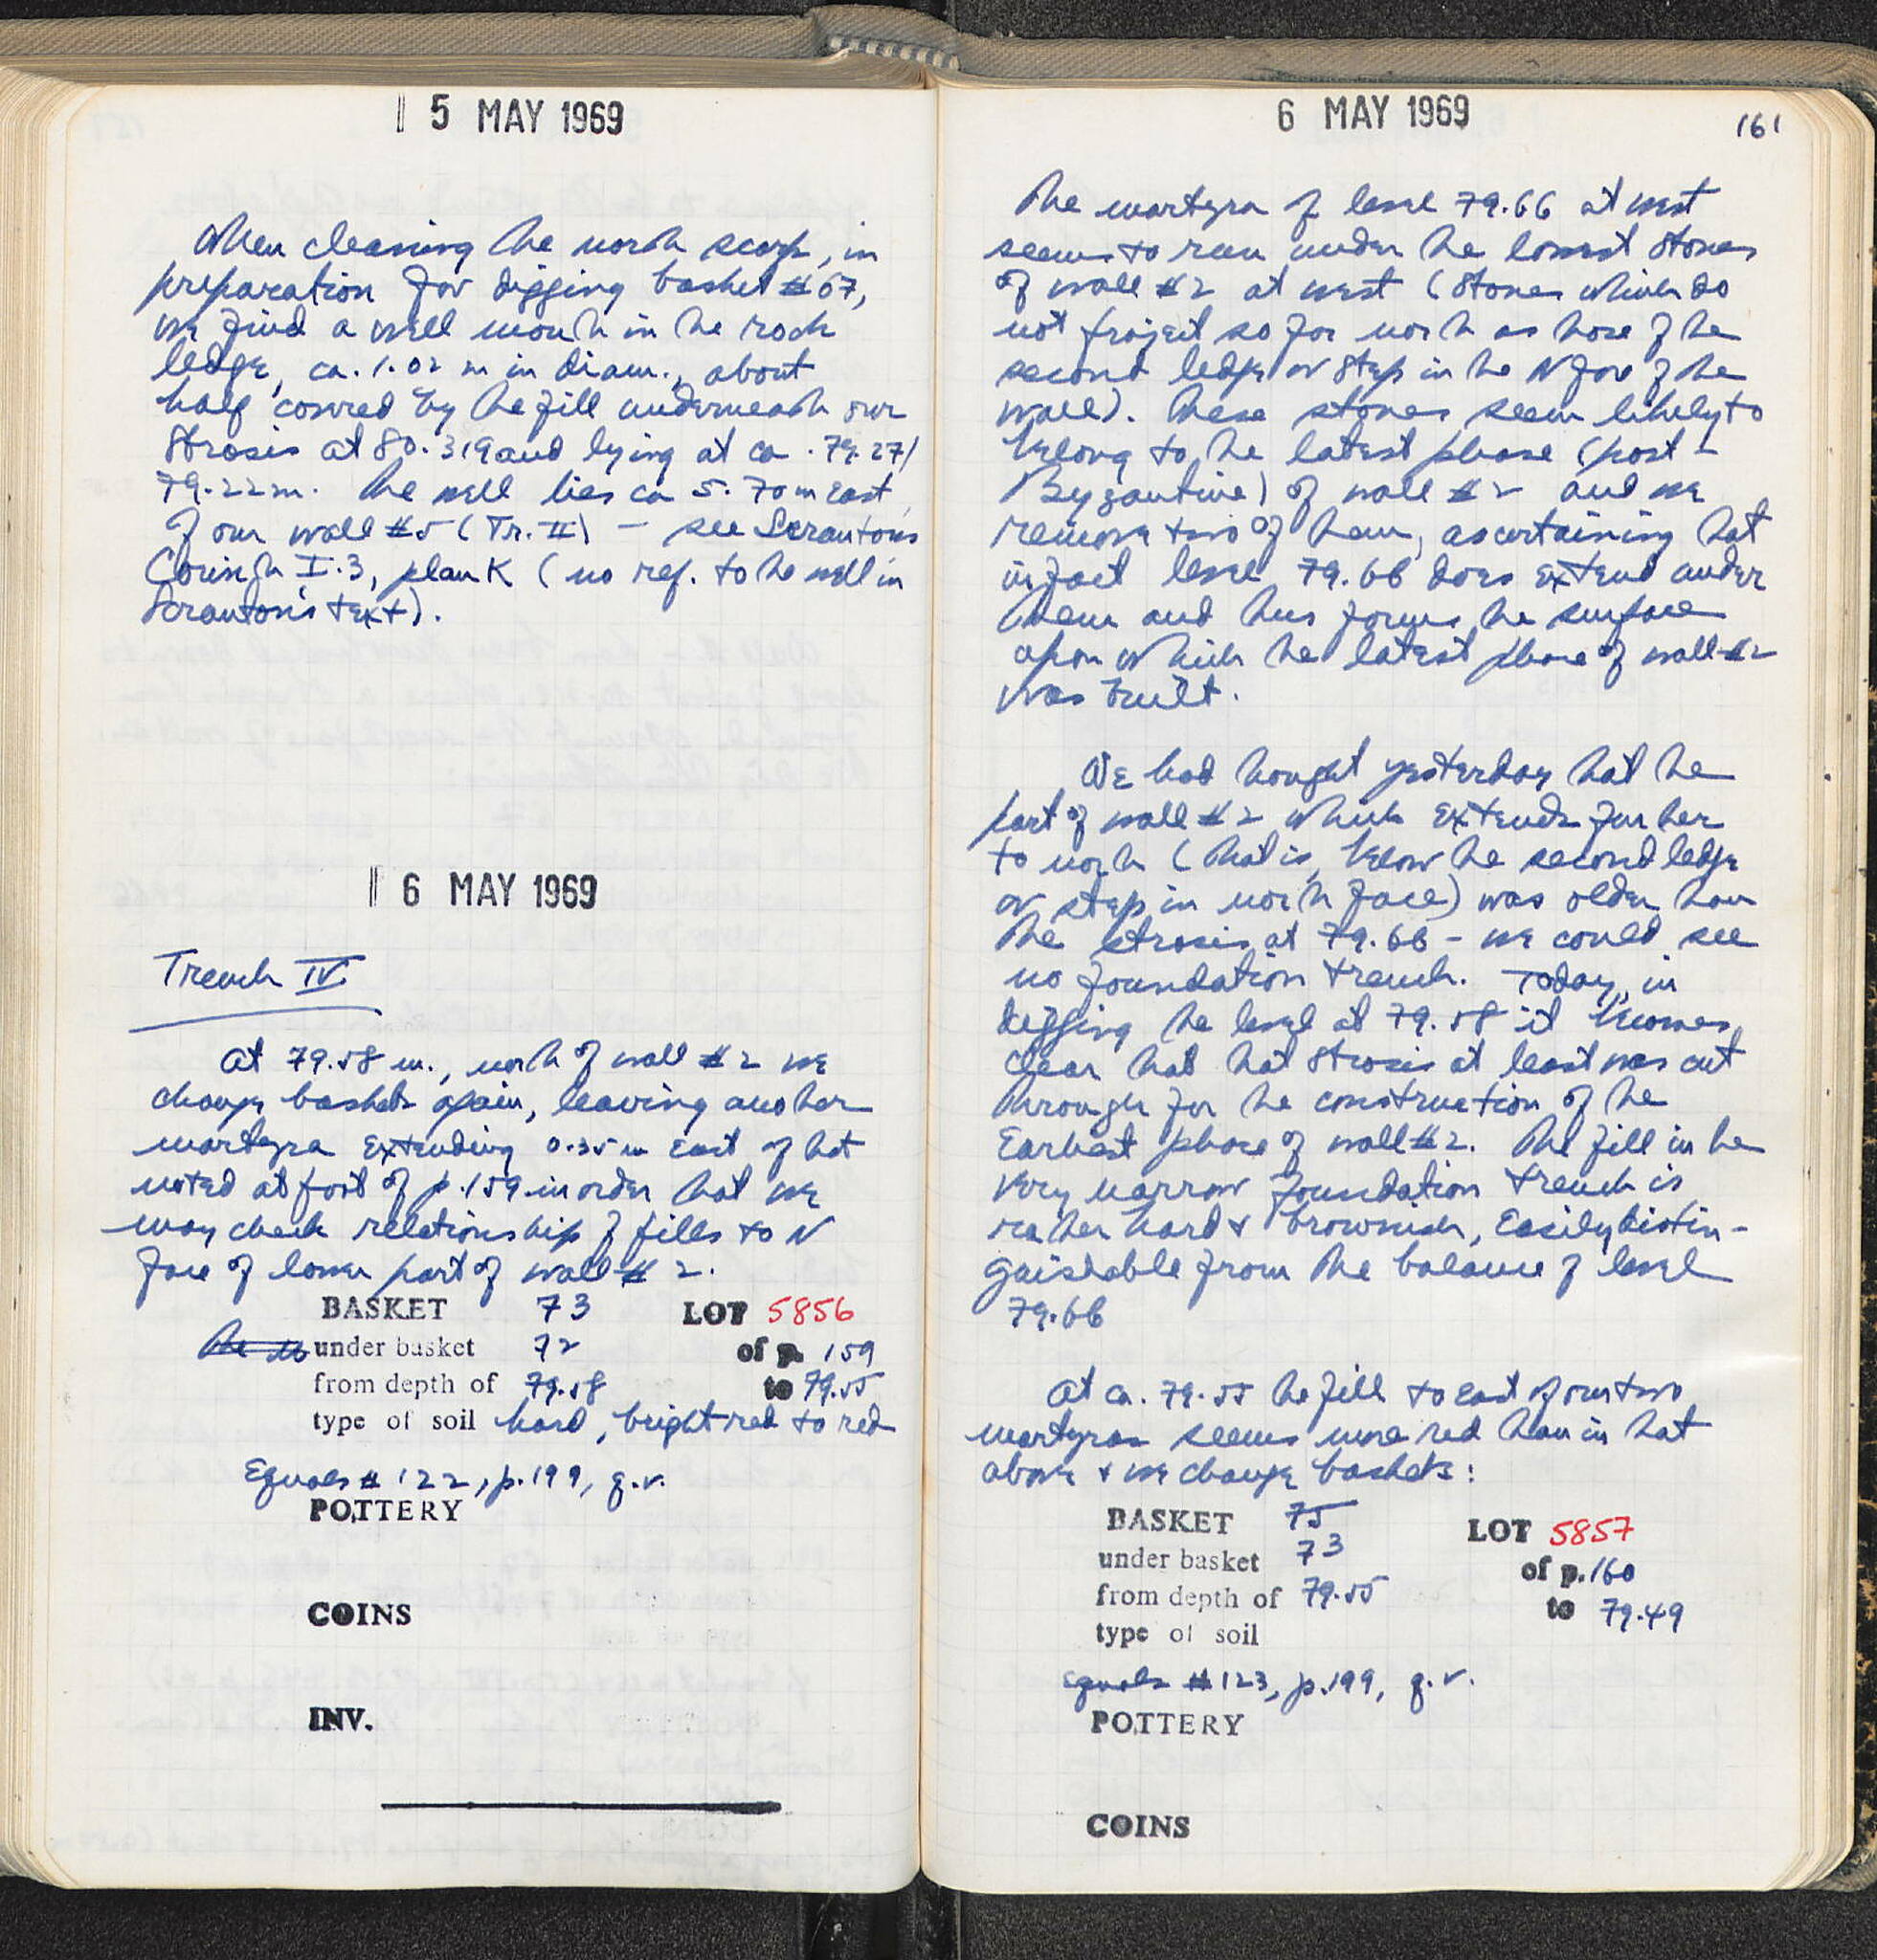 5 MAY 1969
When cleaning the north scarp, in
preparation for digging basket #67,
we find a well mouth in the rock
ledge, ca. 1.02 m in diam., about
half covered by the fill underneath our
strosis at 80.319 and lying at ca. 79.27/
79.22 m. The well lies ca 5.70 m east
of our wall #5 (Tr. II) – see Scranton's
Corinth I.3, plan K (no ref. to the well in
Scranton's text).
6 MAY 1969
Trench IV
At 79.58 m., north of wall #2 we
change baskets again, leaving another
martyra extending 0.35 m east of that
noted at foot of p. 159 in order that we
may check relationship of fills to N
face of lower part of wall #2.
BASKET 73 LOT 5856
under basket 72 of p. 159
from depth of 79.58 to 79.55
type of soil hard, bright red to red
Equals # 122, p. 199, q.v.
POTTERY
COINS
INV.
6 MAY 1969
161
The martyra of level 79.66 at west
seems to run under the lowest stones
of wall #2 at west (stones which do
not project so far north as those of the
second ledge or step in the N face of the
wall). These stones seem likely to
belong to the latest phase (post-
Byzantine) of wall #2 and we
remove two of them, ascertaining that
in fact level 79.66 does extend under
them and thus forms the surface
upon which the latest phase of wall #2
was built.
We had thought yesterday that the
part of wall #2 which extends further
to north (that is, below the second ledge
or step in north face) was older than
the strosis at 79.66 – we could see
no foundation trench. Today, in
digging the level at 79.58 it becomes
clear that that strosis at least was cut
through for the construction of the
earliest phase of wall #2. The fill in the
very narrow foundation trench is
rather hard & brownish, easily distin-
guishable from the balance of level
79.66
At ca. 79.55 the fill to east of our two
martyras seems more red than in that
above & we change baskets:
BASKET 75 LOT 5857
under basket 73 of p. 160
from depth of 79.55 to 79.49
type of soil
Equals #123, p. 199, q.v.
POTTERY
COINS